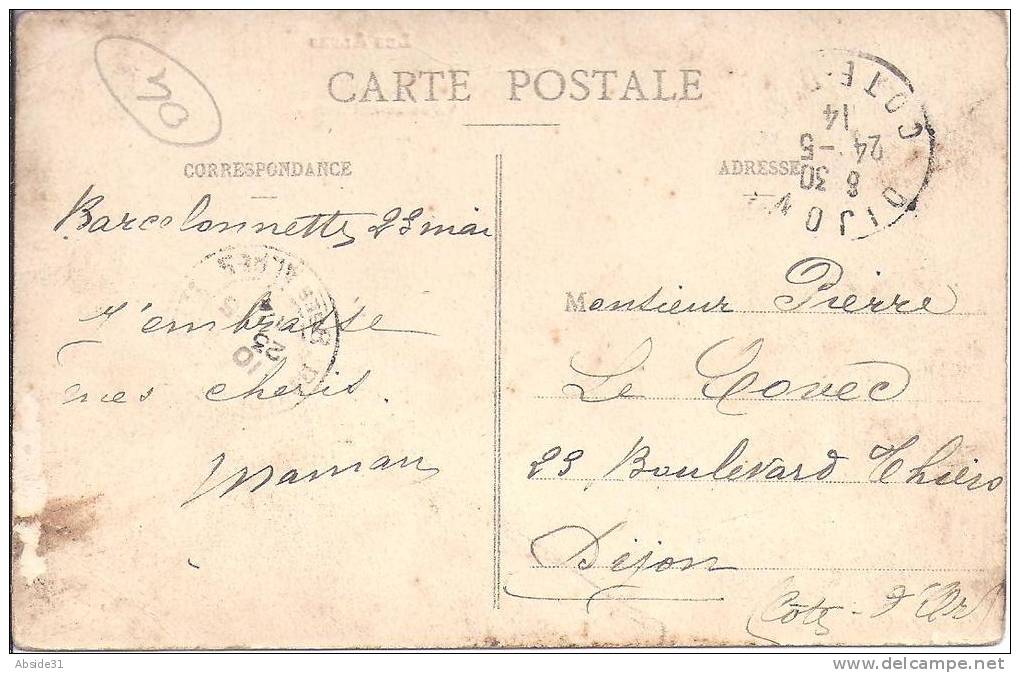 CARTE POSTALE
CORRESPONDANCE
Barcelonnette 23 mai
J'embrasse
mes cheris.
Maman
ADRESSE
Monsieur Pierre
Le Covec
23 Boulevard Thiers
Dijon
Côte-d'Or
DIJON
COTE-D
8 30
24 -5
14
BSES ALPES
10
23
Abside31
www.delcampe.net